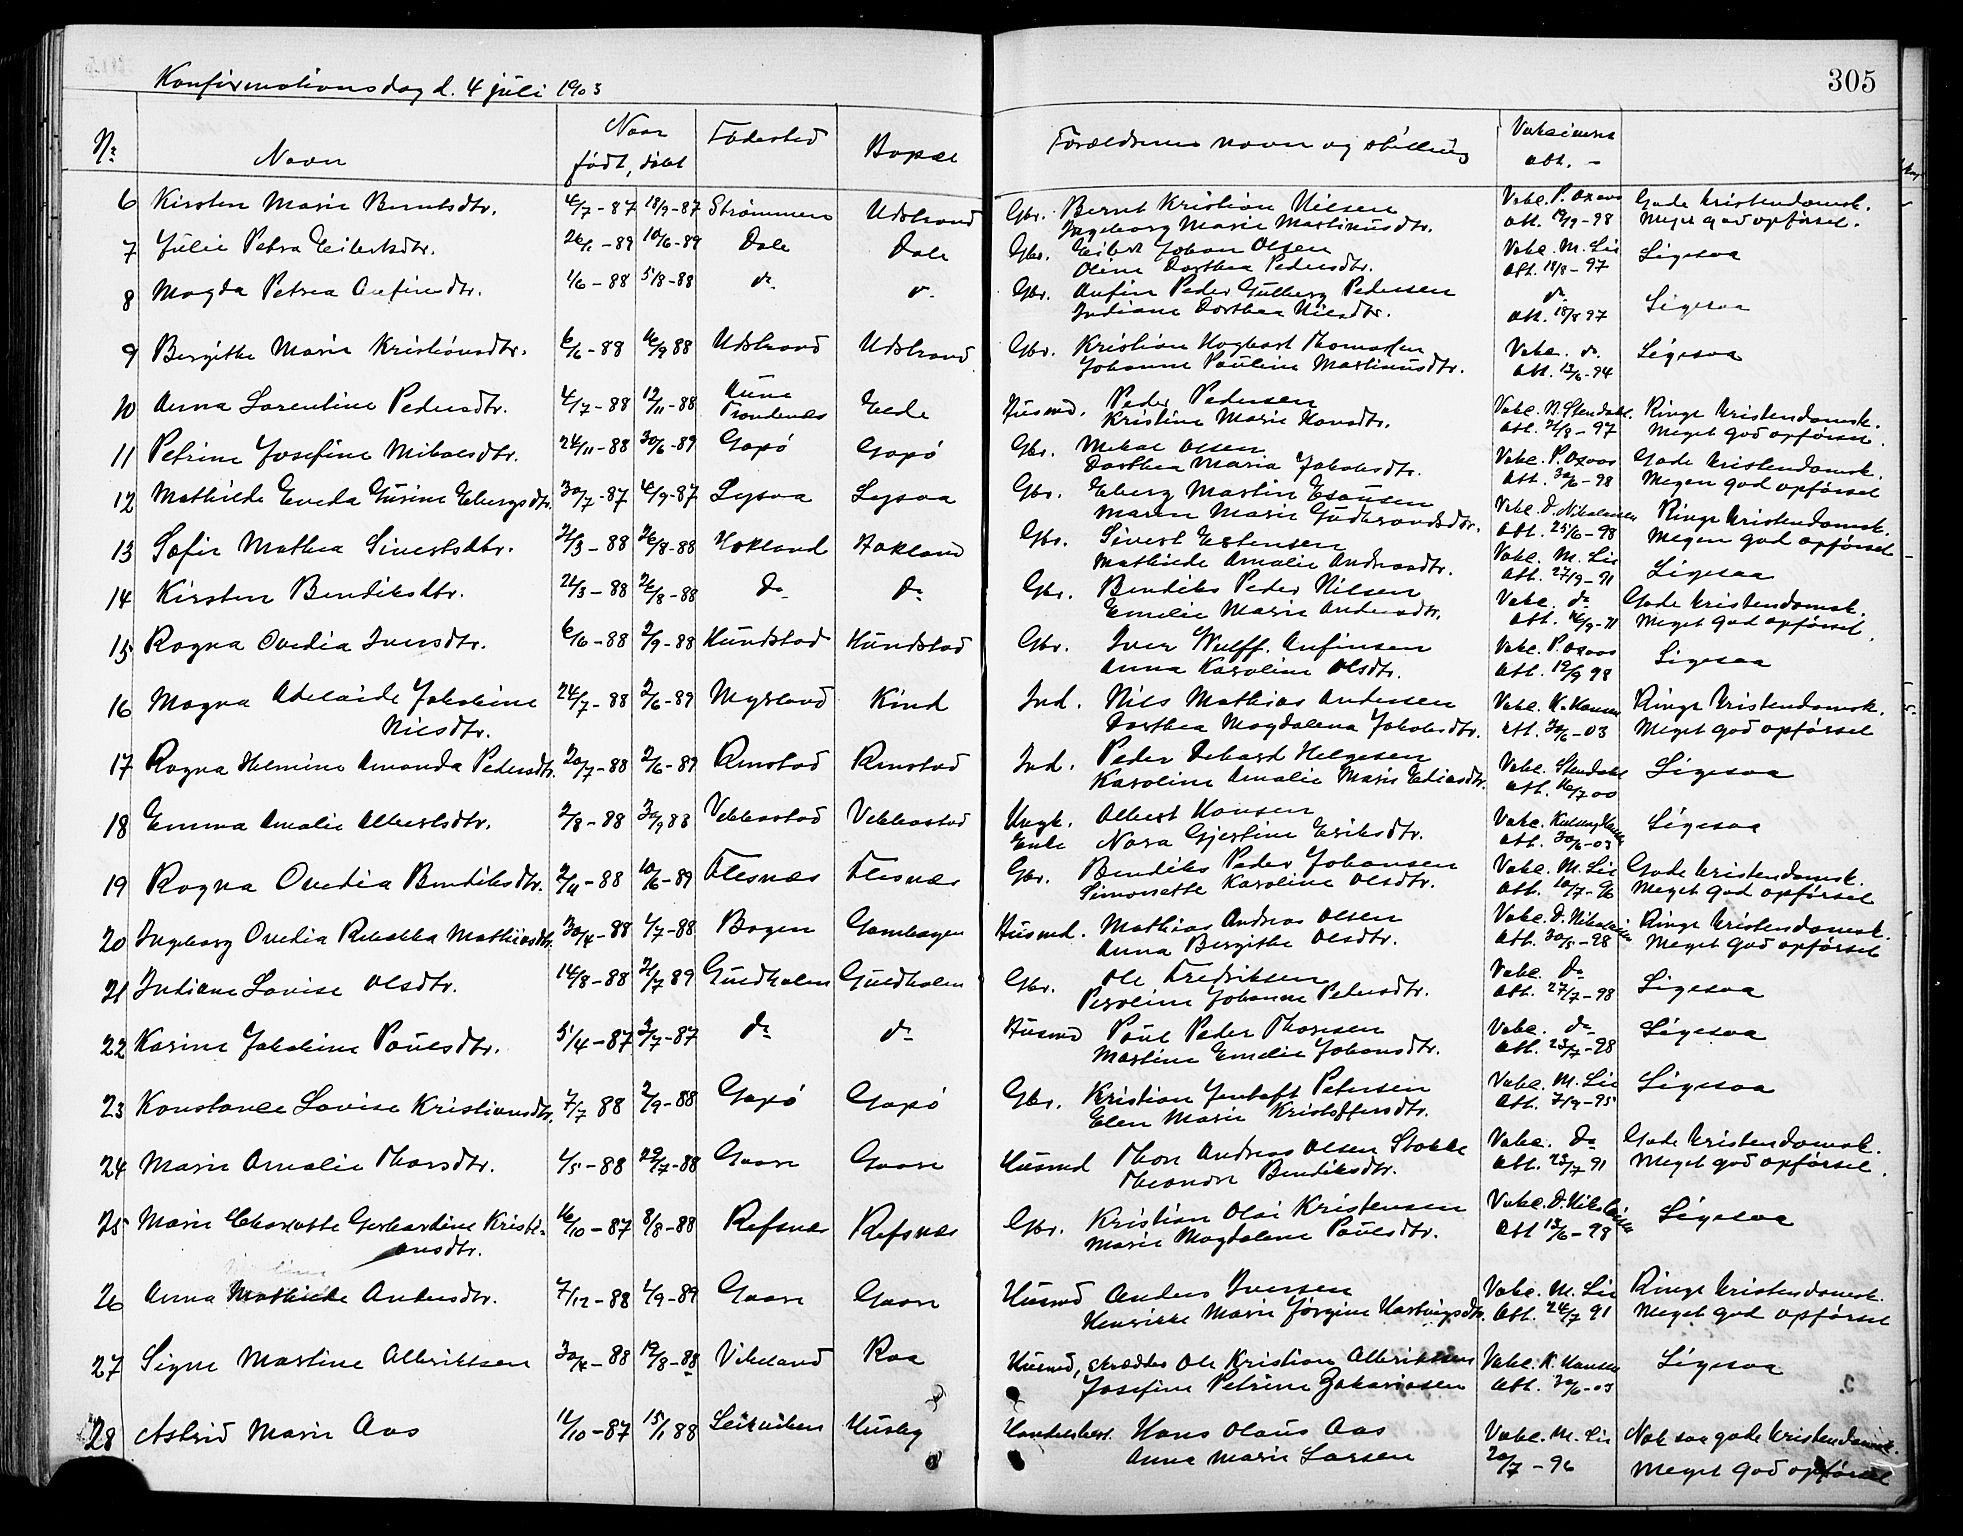 305
Konfirmationsdag d. 4 juli 1903
Nr. Navn Naar født, døbt Fødested Bopæl Forældrenes navn og stilling Vaksineret att.
6 Kirsten Marie Berntsdtr. 4/7-87 18/9-87 Strømmen Udstrand Gbr. Bernt Kristian Nilsen Vakc. P. Oxaas Gode kristendomsk.
Ingeborg Marie Martinusdtr. att. 19/9-98 Meget god opførsel.
7 Julie Petra Eilertsdtr. 26/1-89 10/6-89 Dale Dale Gbr. Eilert Johan Olsen Vakc. M. Lie Ligesaa
Oline Dorthea Pedersdtr. att. 18/8-97
8 Magda Petrea Anfinsdtr. 1/6-88 5/8-88 do do Gbr. Anfin Peder Gulberg Pedersen do Ligesaa
Indiane Dorthea Nilsdtr. att. 18/8 97
9 Bergithe Marie Kristiansdtr. 6/6-88 16/9 88 Udstrand Udstrand Gbr. Kristian Hagbart Thomassen Vakc. do Ligesaa
Johanne Pauline Martinusdtr. att. 13/6-94
10 Anna Larentine Pedersdtr. 4/7-88 12/11-88 Aune Trondenes Elde Husmd. Peder Pedersen Vakc. N. Stendahl. Ringe kristendomsk.
Kristine Marie Hansdtr. att. 21/8-97 Meget god opførsel.
11 Petrine Josefine Mikalsdtr. 24/11-88 30/6-89 Gapø Gapø Gbr. Mikal Olsen Vakc. P. Oxaas Gode kristendomsk.
Dorthea Maria Jakobsdtr. att. 30/6-98 Megen god opførsel
12 Mathilde Eveda Gusine Ebergsdtr. 30/7-87 4/9-87 Lysaa Lysaa Gbr. Eberg Martin Esausen Vakc. D. Nikolaisen Ringe kristendomsk.
Maren Marie Gudbrandsdtr. att. 25/6-98 Megen god opførsel
13 Sofie Mathea Sivertsdtr. 21/3-88 26/8-88 Hokland Hokland Gbr. Sivert Estensen Vakc. M. Lie Ligesaa
Mathilde Amalie Andreasdtr. att. 27/9-91
14 Kirsten Bendiksdtr. 22/3-88 26/8-88 do do Gbr. Bendiks Peder Nilsen Vakc. do Gode kristendomsk.
Emelie Marie Andersdtr. att. 16/9-91 Meget god opførsel.
15 Ragna Ovedia Iversdtr. 6/6-88 2/9-88 Hundstad Hundstad Gbr. Iver Wulff. Anfinsen Vakc. P. Oxaas Ligesaa
Anna Karoline Olsdtr. att. 19/9 98
16 Magna Adelaide Jakobine 24/7-88 2/6-89 Myrland Kind Ind. Nils Mathias Andersen Vakc. K. Hansen Ringe kristendomsk.
Nilsdtr. Dorthea Magdalena Jakobsdtr. att. 30/6-03 Meget god opførsel
17 Ragna Helmine Amanda Pedersdtr. 20/7-88 2/6-89 Rinstad Rinstad Ind. Peder Dehard Helgesen Vakc. Stendahl Ligesaa
Karoline Amalie Marie Eliasdtr. att. 16/7 00
18 Emma Amalie Albertsdtr. 2/8-88 30/9 88 Vebbostad Vebbostad Ungk. Albert Hansen Ligesaa
Enke Nora Gjertine Eriksdtr. att. 30/6-03
19 Ragna Ovedia Bendiksdtr. 2/11-88 10/6-89 Flesnes Flesnes Gbr. Bendiks Peder Johansen Vakc. M. Lie Gode kristendomsk.
Simonette Karoline Olsdtr. att. 10/7-96 Meget god opførsel
20 Ingeborg Ovedia Rebekka Mathiasdtr. 30/4-88 1/7-88 Bogen Gambogen Husmd. Mathias Andreas Olsen Vakc. D. Nikolaisen Ringe kristendomsk.
Anna Bergithe Olsdtr. att. 30/5-98 Meget god opførsel
21 Indiane Lovise Olsdtr. 14/8-88 21/7 89 Guldholen Guldholen Gbr. Ole Fredriksen Vakc. do Ligesaa
Peroline Johanne Pedersdtr. att. 27/7-98
22 Karine Jakobine Poulsdtr. 5/4-87 3/7-87 do do Husmd Poul Peder Thoresen Vakc. do Ligesaa
Martine Emelie Johansdtr. att. 23/7-98
23 Konstance Lovise Kristiansdtr. 7/7 88 2/9-88 Gapø Gapø Gbr. Kristian Jentoft Petersen Vakc. M. Lie Ligesaa
Elen Marie Kristoffersdtr. att. 7/9-95
24 Marie Amalie Thorsdtr. 1/5-88 29/7-88 Gaare Gaare Husmd Thor Andreas Olsen Stokke Vakc. do Gode kristendomsk.
Bendiksdtr. att. 23/7 91 Meget god opførsel.
25 Marie Charlotte Gerhardine Kristi- 16/10-87 8/8-88 Refsnes Refsnes Gbr. Kristian Olai Kristensen Vakc. D. Nikolaisen Ligesaa
ansdtr. Marie Magdalene Poulsdtr. att 13/6-98
26 Anna Mathilde Andersdtr. 7/12-88 1/9-89 Gaare Gaare Husmd Anders Iversen Vakc. M. Lie Ringe kristendomsk.
Henrikke Marie Jørgine Hartvigsdtr. att. 24/7 91 Meget god opførsel
27 Signe Martine Albriktsen 30/4-88 19/8-88 Vikeland Raa Husmd, skrædder Ole Kristian Albriktsen Vakc. K. Hansen Ligesaa
Josefine Petrine Zakariasen att. 30/6-03
28 Astrid Marie Aas 11/10-87 15/1 88 Leikviken Husby Handelsbest. Hans Olaus Aas Vakc. M. Lie Nok saa gode kristendomsk.
Anna Marie Larsen 20/7-96 Meget god opførsel